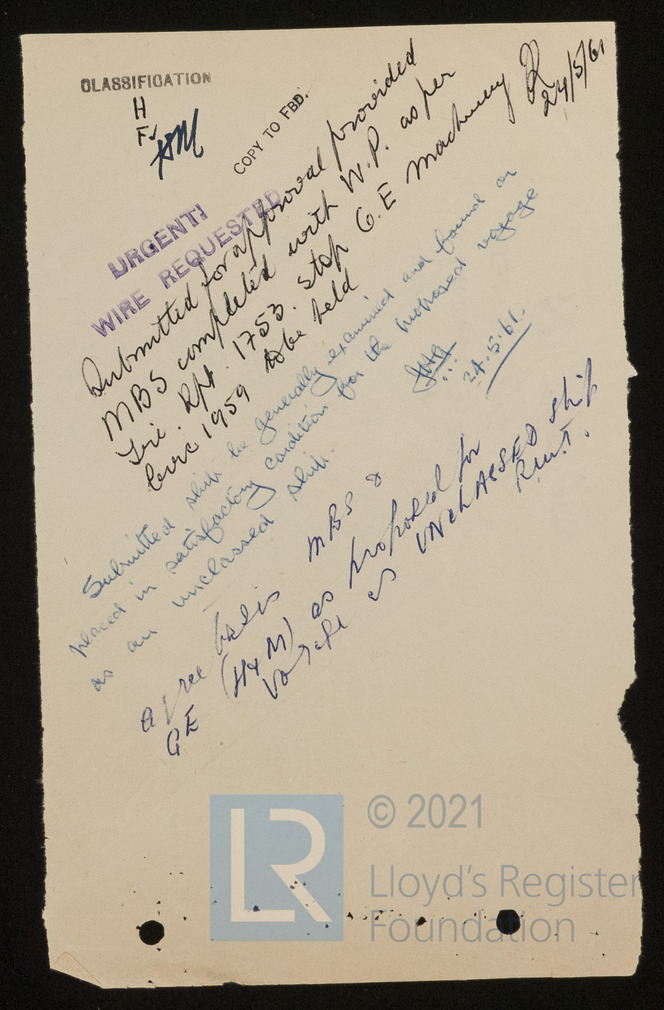 CLASSIFICATION
H
F
COPY TO FBD.
24/5/61
URGENT!
WIRE REQUESTED
Submitted for approval provided
MBS completed with W.P. as per
Rpt. 1753. stop G.E Machinery
1959 to be held
Submitted ship be generally examined and found or
placed in satisfactory condition for the proposed voyage
as an unclassed ship.
24.5.61.
agree basis MBS &
GE (H&M) as proposed for
voyage as UNCLASSED ship
LR
© 2021
Lloyd's Register
Foundation